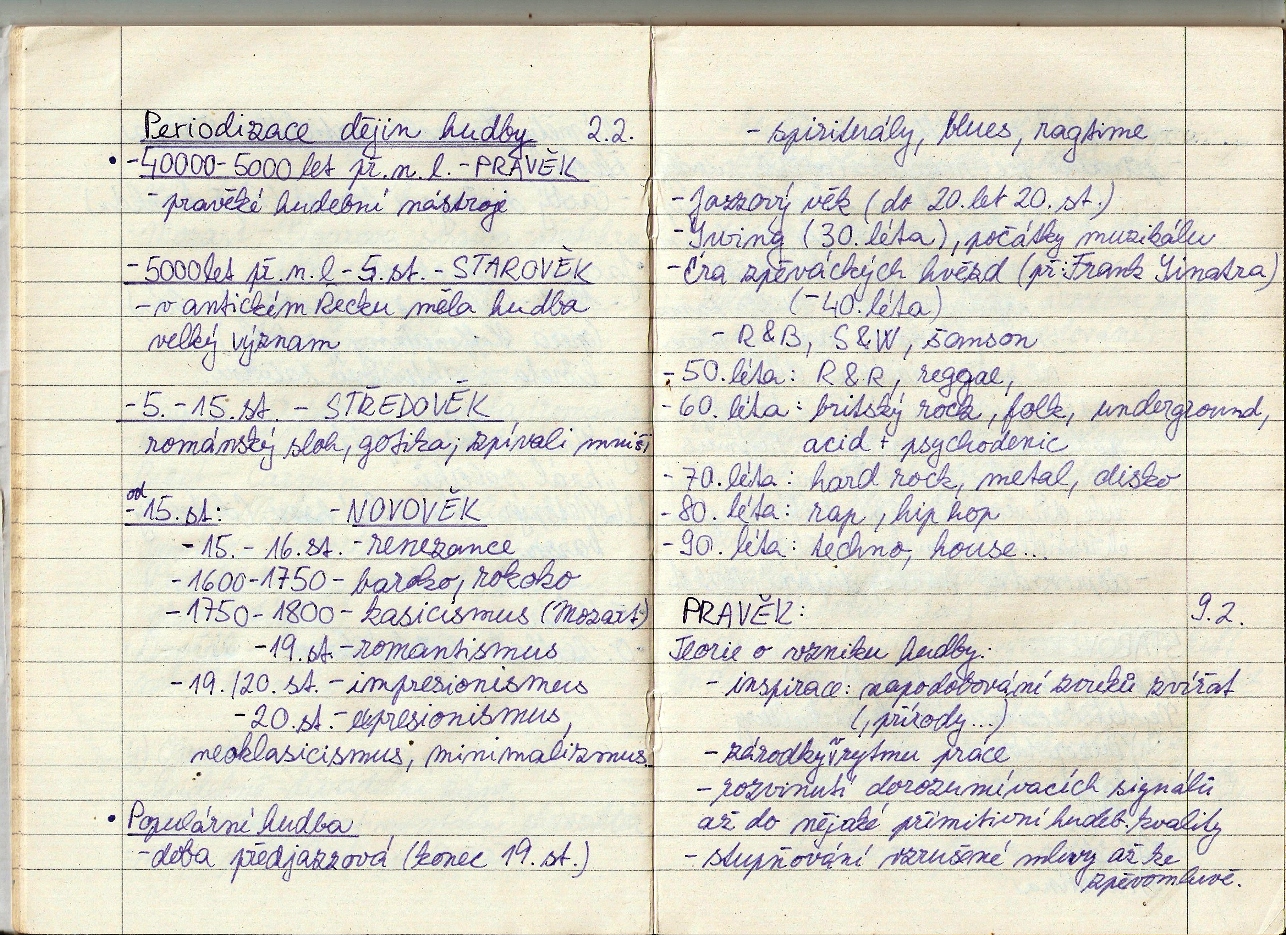 Periodizace dějin hudby 2.2.
• -40000-5000 let př.n.l. - PRAVĚK
- pravěké hudební nástroje
- 5000 let př.n.l - 5. st. - STAROVĚK
- v antickém Řecku měla hudba
velký význam
- 5. - 15. st. - STŘEDOVĚK
románský sloh, gotika; zpívali mniši
od
- 15. st: - NOVOVĚK
- 15. - 16. st. - renezance
- 1600-1750 - baroko, rokoko
- 1750 - 1800 - kasicismus (Mozart)
- 19. st. - romantismus
- 19./20. st. - impresionismus
- 20. st. - expresionismus,
neoklasicismus, minimalizmus
• Populární hudba
- doba předjazzová (konec 19. st.)
- spirituály, blues, ragtime
- Jazzový věk (do 20. let 20. st.)
- Swing (30. léta), počátky muzikálu
- Éra zpěváckých hvězd (př: Frank Sinatra)
(-40. léta)
- R&B, S&W, šanson
- 50. léta: R&R, reggae,
- 60. léta: britský rock, folk, underground,
acid + psychodenic
- 70. léta: hard rock, metal, disko
- 80. léta: rap, hip hop
- 90. léta: techno, house...
PRAVĚK: 9.2.
Teorie o vzniku hudby:
- inspirace: napodobování zvuků zvířat
(, přírody...)
- zárodky v rytmu práce
- rozvinutí dorozumívacích signálů
až do nějaké primitivní hudeb. kvality
- stupňování vzrušené mluvy až ke
zpěvomluvě.